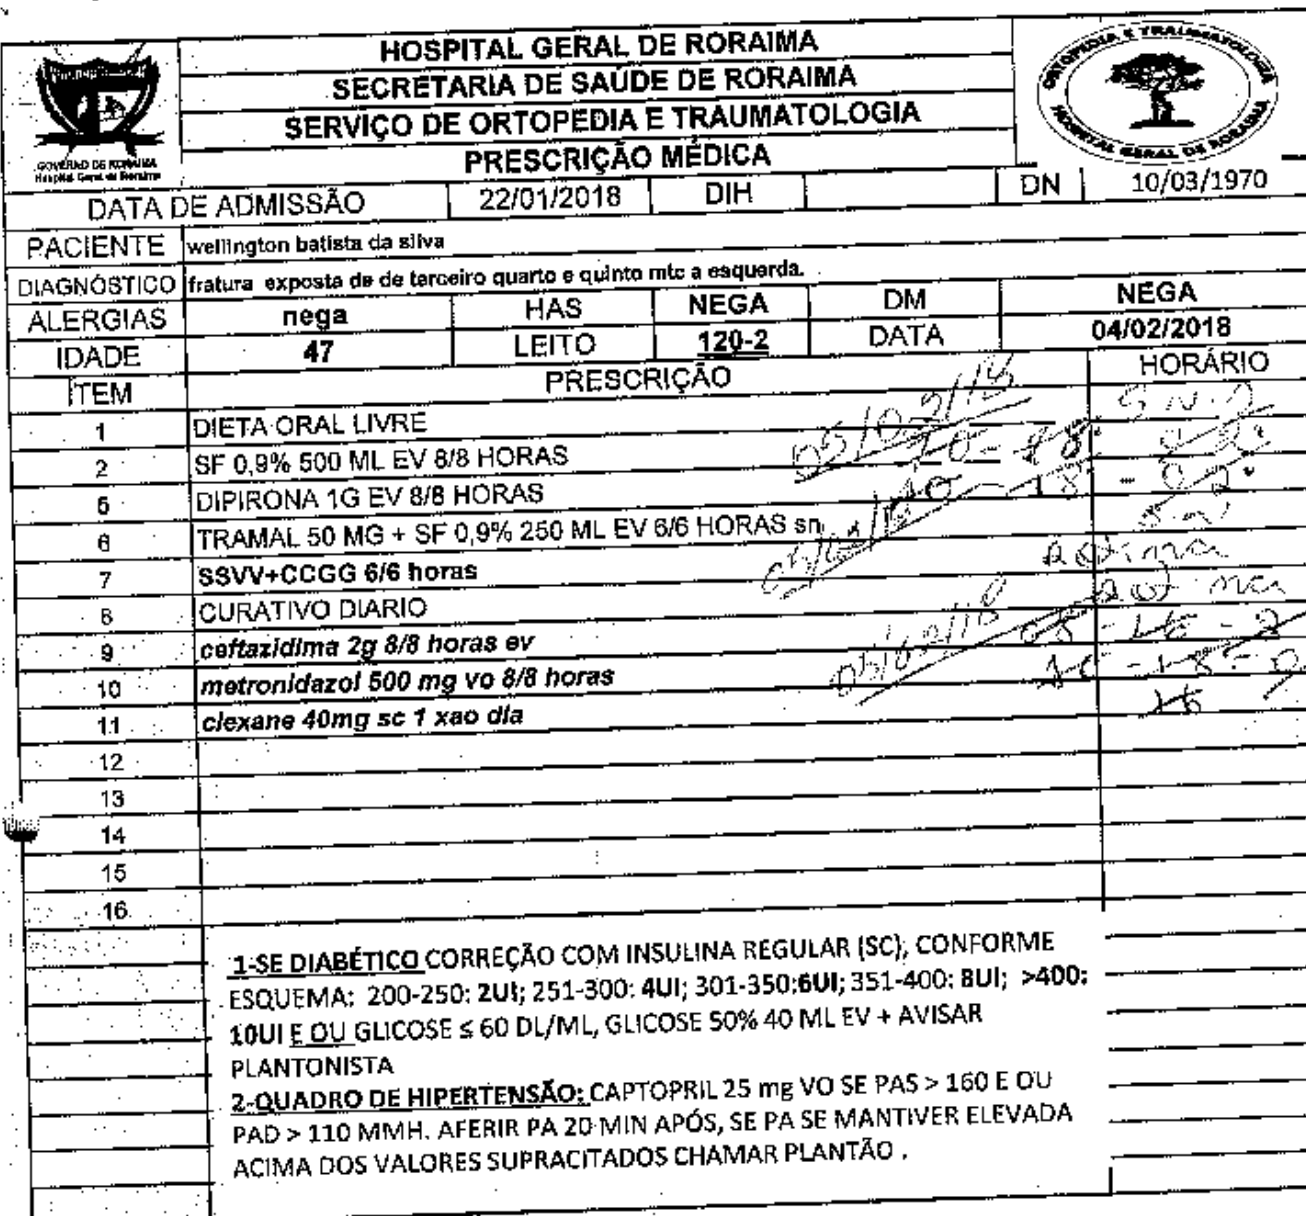 HOSPITAL GERAL DE RORAIMA
SECRETARIA DE SAÚDE DE RORAIMA
SERVIÇO DE ORTOPEDIA E TRAUMATOLOGIA
PRESCRIÇÃO MÉDICA
GOVERNO DE RORAIMA
Hospital Geral de Roraima
ORTOPEDIA E TRAUMATOLOGIA
HOSPITAL GERAL DE RORAIMA
DATA DE ADMISSÃO 22/01/2018 DIH DN 10/03/1970
PACIENTE wellington batista da silva
DIAGNÓSTICO fratura exposta de de terceiro quarto e quinto mtc a esquerda.
ALERGIAS nega HAS NEGA DM NEGA
IDADE 47 LEITO 120-2 DATA 04/02/2018
ÍTEM PRESCRIÇÃO HORÁRIO
1 DIETA ORAL LIVRE
2 SF 0,9% 500 ML EV 8/8 HORAS
5 DIPIRONA 1G EV 8/8 HORAS
6 TRAMAL 50 MG + SF 0,9% 250 ML EV 6/6 HORAS sn
7 SSVV+CCGG 6/6 horas
8 CURATIVO DIARIO
9 ceftazidima 2g 8/8 horas ev
10 metronidazol 500 mg vo 8/8 horas
11 clexane 40mg sc 1 xao dia
12
13
14
15
16
1-SE DIABÉTICO CORREÇÃO COM INSULINA REGULAR (SC), CONFORME
ESQUEMA: 200-250: 2UI; 251-300: 4UI; 301-350:6UI; 351-400: 8UI; >400:
10UI E OU GLICOSE ≤ 60 DL/ML, GLICOSE 50% 40 ML EV + AVISAR
PLANTONISTA
2-QUADRO DE HIPERTENSÃO: CAPTOPRIL 25 mg VO SE PAS > 160 E OU
PAD > 110 MMH. AFERIR PA 20 MIN APÓS, SE PA SE MANTIVER ELEVADA
ACIMA DOS VALORES SUPRACITADOS CHAMAR PLANTÃO .